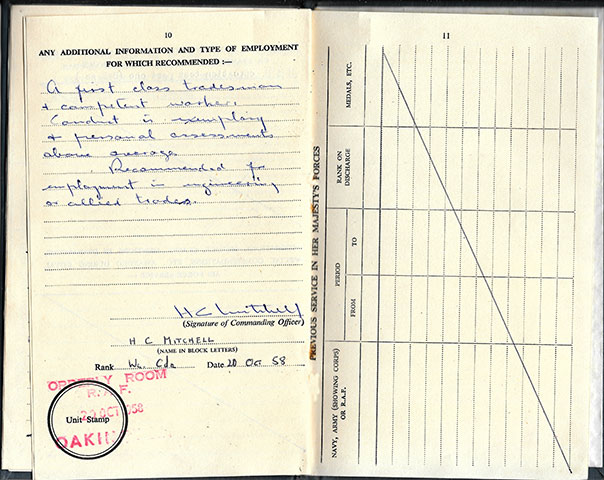 10
ANY ADDITIONAL INFORMATION AND TYPE OF EMPLOYMENT
FOR WHICH RECOMMENDED :—
A first class tradesman
& competent worker.
Conduct is exemplary
& personal assessments
above average
Recommended for
employment in engineering
or allied trades.
H C Mitchell
(Signature of Commanding Officer)
H C MITCHELL
(NAME IN BLOCK LETTERS)
Rank Wg. Cdr Date 20 Oct 58
ORDERLY ROOM
R.A.F.
20 OCT 1958
Unit Stamp
OAKIN
11
PREVIOUS SERVICE IN HER MAJESTY'S FORCES
MEDALS, ETC.
RANK ON
DISCHARGE
PERIOD
TO
FROM
NAVY, ARMY (SHOWING CORPS)
OR R.A.F.